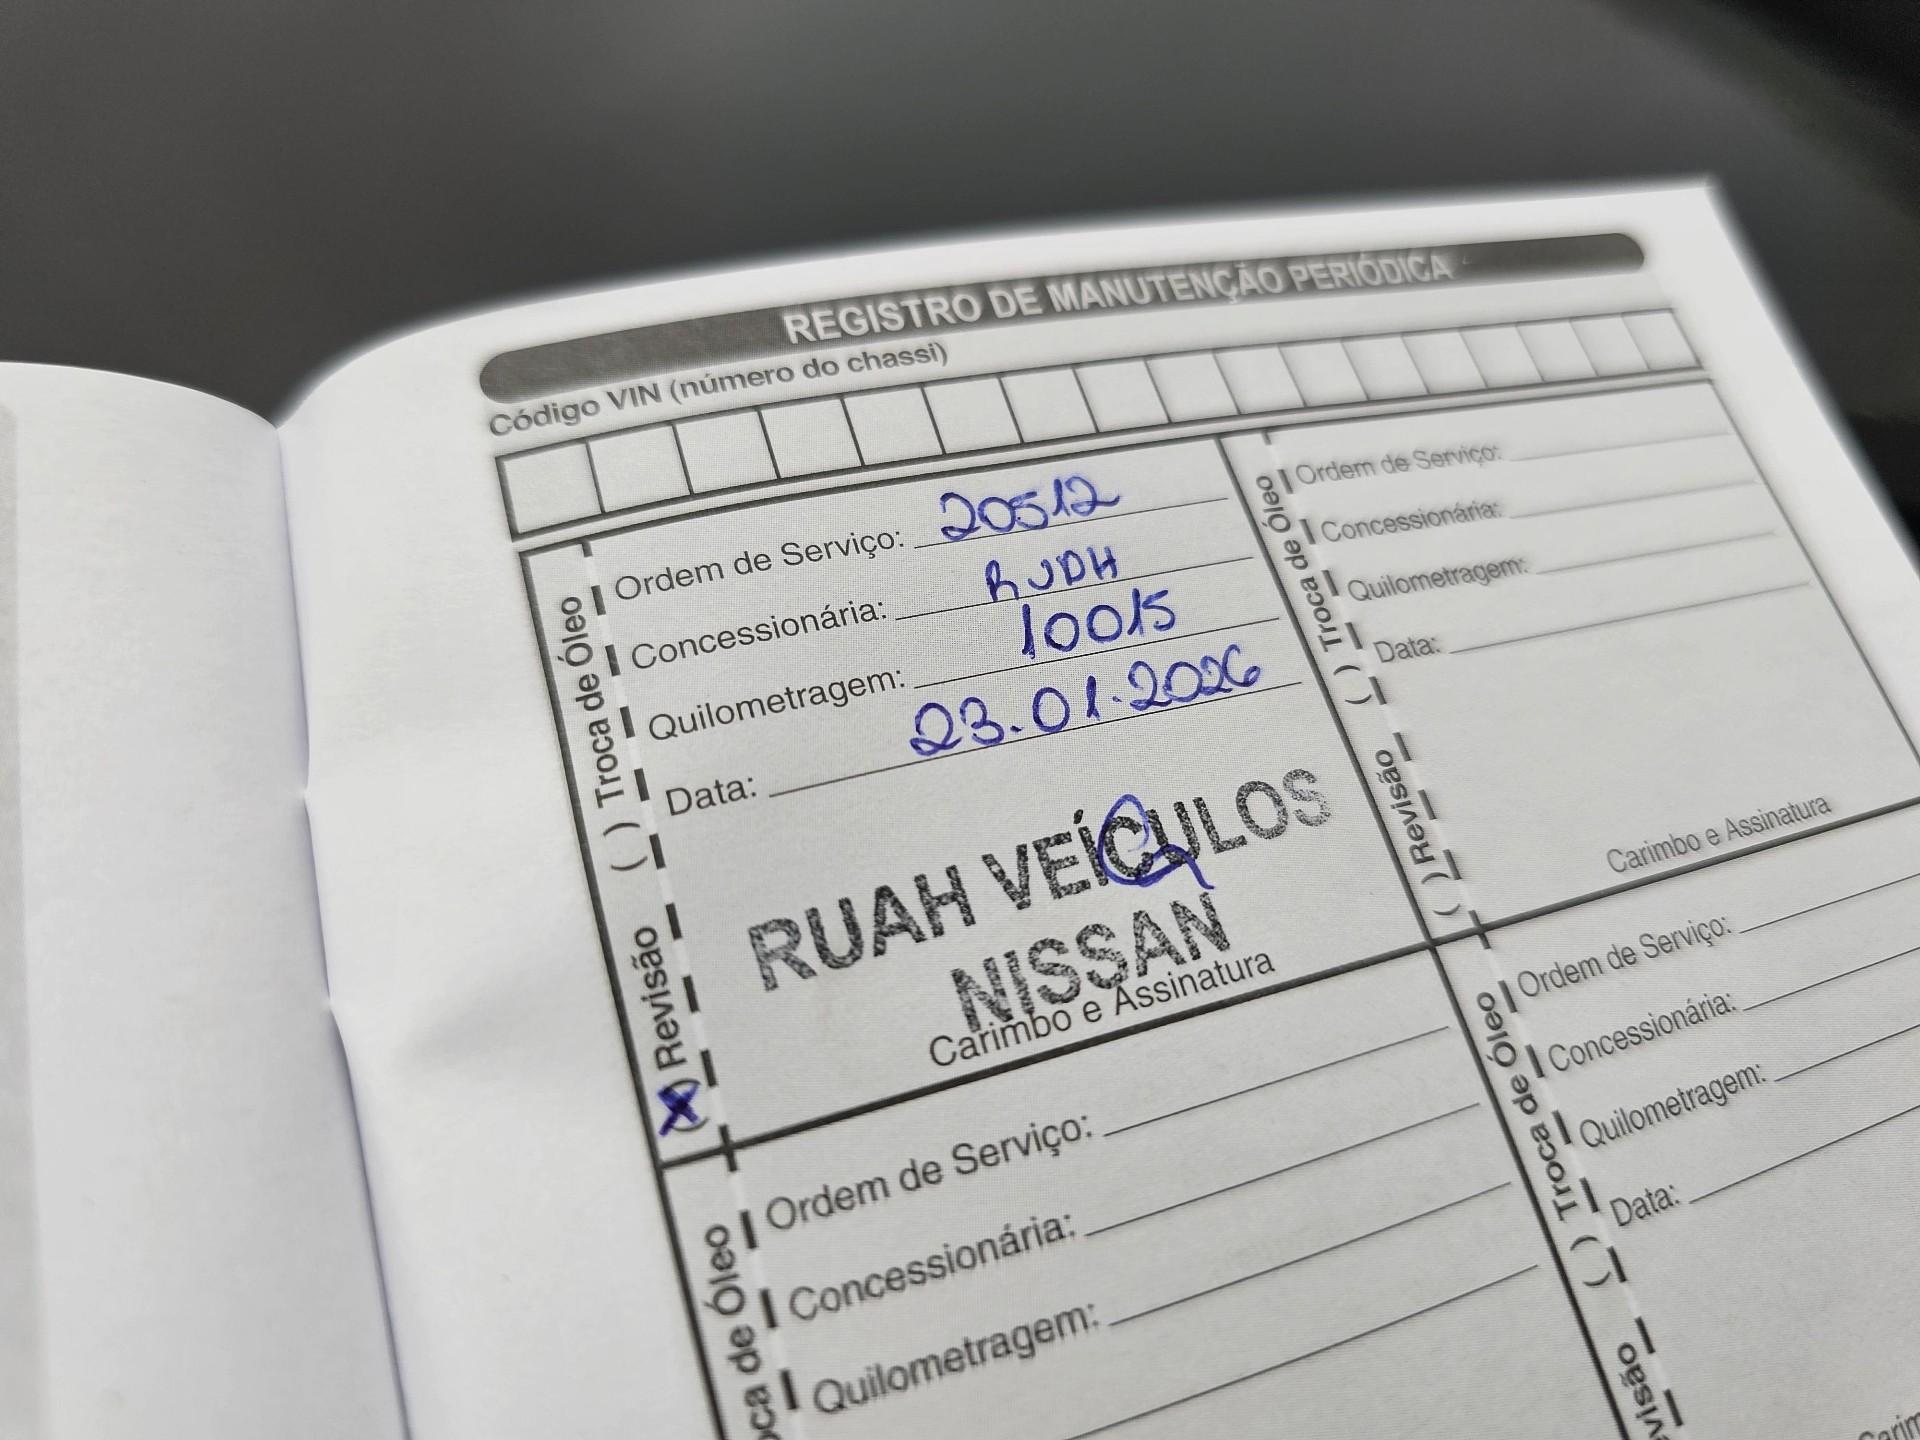 REGISTRO DE MANUTENÇÃO PERIÓDICA
Código VIN (número do chassi)
( ) Troca de Óleo
(X) Revisão
Ordem de Serviço: 20512
Concessionária: RUDH
Quilometragem: 10015
Data: 23.01.2026
RUAH VEÍCULOS
NISSAN
Carimbo e Assinatura
( ) Troca de Óleo
( ) Revisão
Ordem de Serviço:
Concessionária:
Quilometragem:
Data:
Carimbo e Assinatura
oca de Óleo
Ordem de Serviço:
Concessionária:
Quilometragem:
( ) Troca de Óleo
evisão
Ordem de Serviço:
Concessionária:
Quilometragem:
Data:
Carim